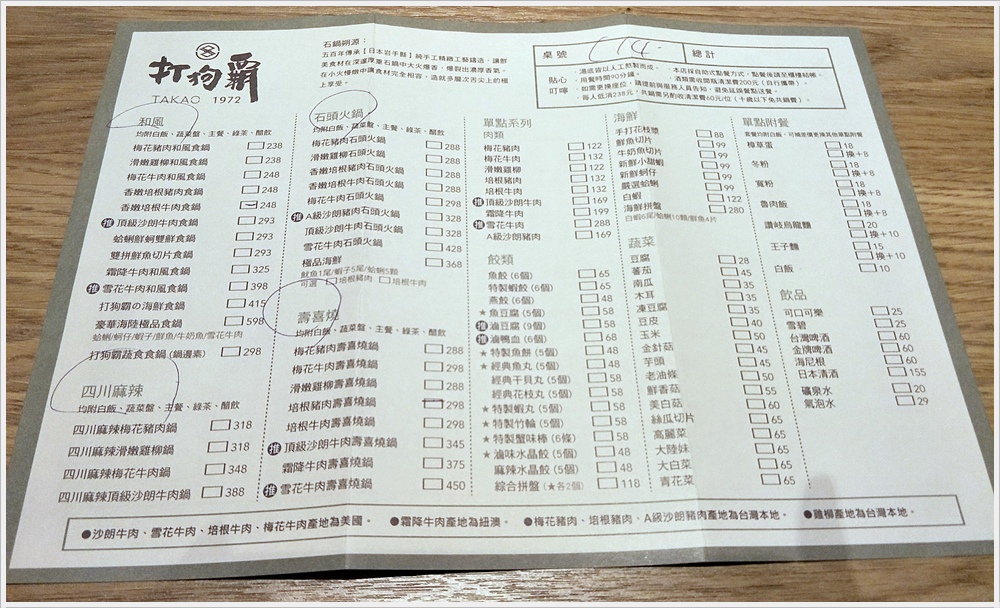 打狗霸
TAKAO 1972
石鍋朔源：
五百年傳承【日本岩手縣】純手工精緻工藝鑄造，讓鮮
美食材在深邃厚重石鍋中大火爆香，爆裂出濃厚香氣。
在小火慢燉中讓食材完全相容，造就多層次舌尖上的極
上享受。
桌號
總計
貼心
叮嚀
．湯底皆以人工熬製而成。
．用餐時間90分鐘。
．如需更換座位，請提前與服務人員告知，避免延誤餐點送達。
．每人低消238元，共鍋需另酌收清潔費60元/位（十歲以下免共鍋費）。
．本店採自助式點餐方式，點餐後請至櫃檯結帳。
．酒類需收開瓶清潔費200元（自行攜帶）。
和風
均附白飯、蔬菜盤、主餐、綠茶、醋飲
梅花豬肉和風食鍋 238
滑嫩雞柳和風食鍋 238
梅花牛肉和風食鍋 248
香嫩培根豬肉食鍋 248
香嫩培根牛肉食鍋 248
推 頂級沙朗牛肉食鍋 293
蛤蜊鮮蚵雙鮮食鍋 293
雙拼鮮魚切片食鍋 293
霜降牛肉和風食鍋 325
推 雪花牛肉和風食鍋 398
打狗霸の海鮮食鍋 415
豪華海陸極品食鍋 598
蛤蜊/蚵仔/蝦子/鮮魚/牛奶魚/雪花牛肉
打狗霸蔬食食鍋 (鍋邊素) 298
四川麻辣
均附白飯、蔬菜盤、主餐、綠茶、醋飲
四川麻辣梅花豬肉鍋 318
四川麻辣滑嫩雞柳鍋 318
四川麻辣梅花牛肉鍋 348
四川麻辣頂級沙朗牛肉鍋 388
石頭火鍋
均附白飯、蔬菜盤、主餐、綠茶、醋飲
梅花豬肉石頭火鍋 288
滑嫩雞柳石頭火鍋 288
香嫩培根豬肉石頭火鍋 288
香嫩培根牛肉石頭火鍋 288
梅花牛肉石頭火鍋 298
推 A級沙朗豬肉石頭火鍋 328
頂級沙朗牛肉石頭火鍋 328
雪花牛肉石頭火鍋 428
極品海鮮 368
魷魚1尾/蝦子5尾/蛤蜊5顆
可選 培根豬肉 培根牛肉
壽喜燒
均附白飯、蔬菜盤、主餐、綠茶、醋飲
梅花豬肉壽喜燒鍋 288
梅花牛肉壽喜燒鍋 298
滑嫩雞柳壽喜燒鍋 288
培根豬肉壽喜燒鍋 298
培根牛肉壽喜燒鍋 298
推 頂級沙朗牛肉壽喜燒鍋 345
霜降牛肉壽喜燒鍋 375
推 雪花牛肉壽喜燒鍋 450
單點系列
肉類
梅花豬肉 122
梅花牛肉 132
滑嫩雞柳 122
培根豬肉 132
培根牛肉 132
推 頂級沙朗牛肉 169
霜降牛肉 199
推 雪花牛肉 288
A級沙朗豬肉 169
餃類
魚餃 (6個) 65
特製蝦餃 (6個) 65
燕餃 (6個) 48
★魚豆腐 (5個) 58
推 滷豆腐 (9個) 58
推 滷鴨血 (6個) 68
★特製魚餅 (5個) 48
★經典魚丸 (5個) 58
經典干貝丸 (5個) 58
經典花枝丸 (5個) 58
★特製蝦丸 (5個) 58
★特製竹輪 (5個) 58
★特製蟹味棒 (6條) 58
★滷味水晶餃 (5個) 48
麻辣水晶餃 (5個) 48
綜合拼盤 (★各2個) 118
海鮮
手打花枝漿 88
鮮魚切片 99
牛奶魚切片 99
新鮮小甜蝦 99
新鮮蚵仔 99
嚴選蛤蜊 99
白蝦 122
海鮮拼盤 280
白蝦6尾/蛤蜊10顆/鮮魚4片
蔬菜
豆腐 28
蕃茄 45
南瓜 35
木耳 35
凍豆腐 35
豆皮 40
玉米 50
金針菇 45
芋頭 45
老油條 50
鮮香菇 55
美白菇 60
絲瓜切片 65
高麗菜 65
大陸妹 65
大白菜 65
青花菜 65
單點附餐
套餐均附白飯，可補差價更換其他單點附餐
樟草蛋 18
換+8
冬粉 18
換+8
寬粉 18
換+8
魯肉飯 18
換+8
讚岐烏龍麵 20
換+10
王子麵 15
換+10
白飯 10
飲品
可口可樂 25
雪碧 25
台灣啤酒 60
金牌啤酒 60
海尼根 60
日本清酒 155
礦泉水 20
氣泡水 29
●沙朗牛肉、雪花牛肉、培根牛肉、梅花牛肉產地為美國。 ●霜降牛肉產地為紐澳。 ●梅花豬肉、培根豬肉、A級沙朗豬肉產地為台灣本地。 ●雞柳產地為台灣本地。